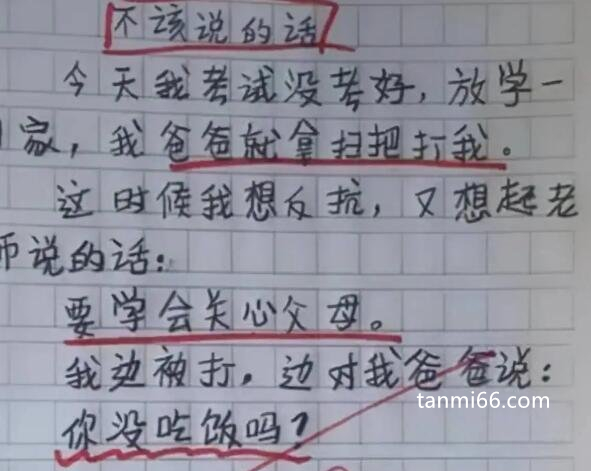 不该说的话
今天我考试没考好，放学一
家，我爸爸就拿扫把打我。
这时候我想反抗，又想起老
师说的话：
要学会关心父母。
我边被打，边对我爸爸说：
tanmi66.com
你没吃饭吗？